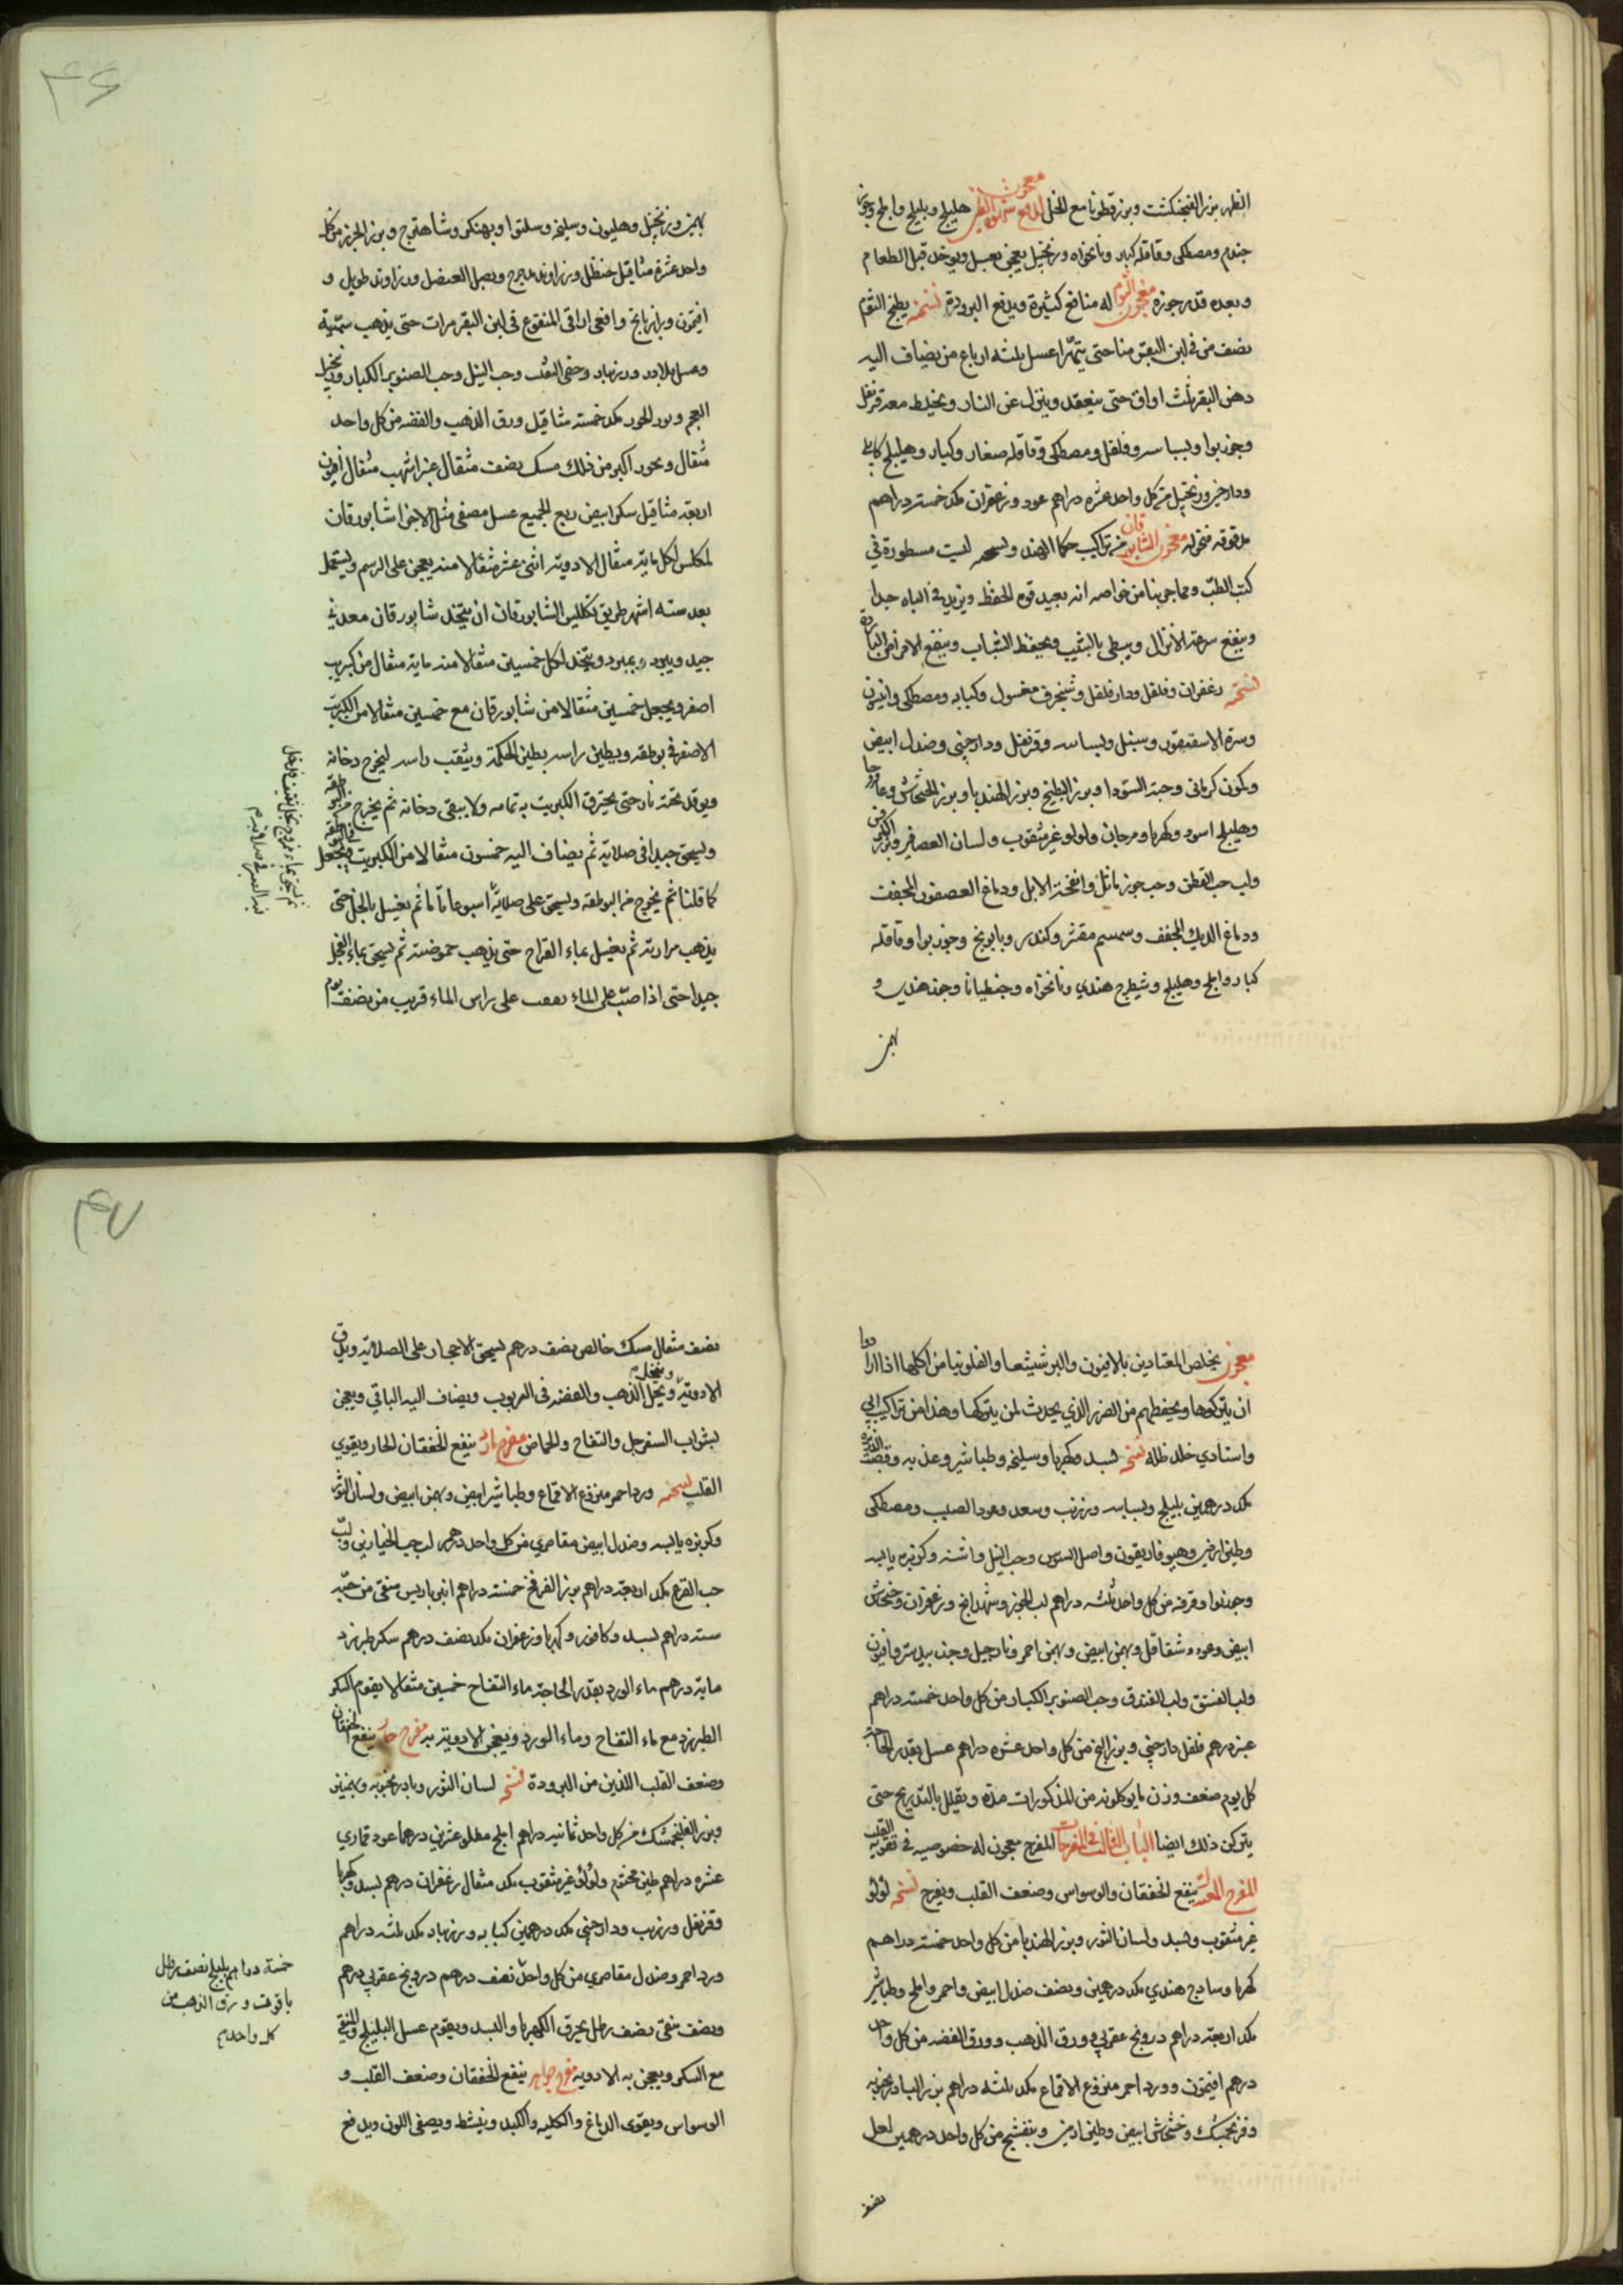 الظهر بزر الفنجنكشت وبزرقطونا مع الخل معجون هليلج وبليلج واملج
جندم ومصطكى وقاقلة كبار ونانخواه وزنجبيل يعجن بعسل ويوخذ قبل الطعام
وبعده قدر جوزه معجون الثوم له منافع كثيرة ويدفع البرودة نسخته يطبخ الثوم
نصف من في لبن البقر منا حتى يتهرا عسل ثلثه ارباع من يضاف اليه
دهن البقر ثلث اواق حتى ينعقد وينزل عن النار ويخلط معه قرنفل
وجوزبوا وبسباسه وفلفل ومصطكى وقاقلة صغار وكبار وهليلج كابلي
ودارچيني وزنجبيل من كل واحد عشره دراهم عود وزعفران مكد خمسة دراهم
مدقوقه منخوله معجون الشابورقان من تراكيب حكما الهند ونسخته ليست مسطورة في
كتب الطب ومما جربنا من خواصه انه يعيد قوه الحفظ ويزيد في الباه جدا
وينفع سرعة الانزال ويبطى بالشيب ويحفظ الشباب وينفع الامراض الباردة
نسخته زعفران وفلفل ودارفلفل وشنجرف مغسول وكبابه ومصطكى وانيسون
وسرة الاسقنقور وسنبل وبسباسه وقرنفل ودارچيني وصندل ابيض
وكمون كرمانى وحبة السودا وبزر البطيخ وبزر الهندبا وبزر الخشخاش وعاقرقرحا
وهليلج اسود وكهربا ومرجان ولولو غير مثقوب ولسان العصافير وبزر الكرفس
ولب حب القطن وحب جوز ماثل وانفحة الابل ودماغ العصفور المجفف
ودماغ الديك المجفف وسمسم مقشر وكندر وبابونج وجوزبوا وقاقله
كبار واملج وهليلج وشيطرج هندي ونانخواه وجنطيانا وجوز هندي و
بهمن
۴۶
بهمن وزنجبيل وهليون وسليخه وسلتوا وبهنكر وشاهترج وبزر الجزر من كل
واحد عشرة مثاقيل حنظل وزراوند مدحرج وبصل العنصل وزراوند طويل و
افتيمون ورازيانج وافعى اواقى المنقوع في لبن البقر مرات حتى يذهب سميته
وعسل بلادر وزرنباد وخصى الثعلب وحب النيل وحب الصنوبر الكبار
العجم مكد خمسة مثاقيل ورق الذهب والفضه من كل واحد
مثقال مسك نصف مثقال عنبر اشهب مثقال افيون
اربعة مثاقيل سكر ابيض ربع الجميع عسل مصفى مثل الاجزا شابورقان
المكلس لكل ماية مثقال الادوية اثنى عشر مثقالا منه يعجن على الرسم ويستعمل
بعد ستة اشهر طريق تكليس الشابورقان ان يتخذ شابورقان معدني
جيد ويبرد بمبرد ويتخذ لكل خمسين مثقالا منه ماية مثقال من كبريت
اصفر ويجعل خمسين مثقالا من شابورقان مع خمسين مثقالا من الكبريت
الاصفر في بوطقه ويطين راسه بطين الحكمة ويثقب راسه ليخرج دخانه
ويوقد تحته نار حتى يحترق الكبريت بتمامه ولا يبقى دخانه ثم يخرج من البوطقه
ويسحق جيدا في صلاية ثم يضاف اليه خمسون مثقالا من الكبريت ويجعل في البوطقه
كما قلنا ثم يخرج من البوطقه ويسحق على صلاية اسبوعا تاما ثم يغسل بالخل حتى
يذهب مرارته ثم يغسل بماء القراح حتى يذهب حموضته ثم يسحق بماء الفجل
جيدا حتى اذا صب على الماء على راس الماء قريب من نصف يوم
معجون يخلص المعتادين بالافيون والبرشيشعا والفلونيا من اكلها اذا ارادوا
ان يتركوها ويحفظهم من الضرر الذي يحدث لمن يتركها وهذا من تراكيب ابي
واستادي خلد ظله نسخته بسد وكهربا وسليخه وطباشير وعذبه وقصب الذريره
مكد درهمين بليلج وبسباسه وزرنب وسعد وعود الصليب ومصطكى
وطين ارمني وهيوفاريقون واصل السوس وحب النيل واشنه وكزبره يابسه
وجوزبوا وقرفه من كل واحد ثلثه دراهم لب الجوز وشهدانج وزعفران وخشخاش
ابيض وعود وشقاقل وبهمن ابيض وبهمن احمر ونارجيل وجندبيدستر وافيون
ولب الفستق ولب الفندق وحب الصنوبر الكبار من كل واحد خمسة دراهم
عنبر درهم فلفل دارچيني وبزر البنج من كل واحد عشره دراهم عسل بقدر الحاجة
كل يوم ضعف وزن ما يوكلونه من المذكورات مدة ويقلل بالتدريج حتى
يتركن ذلك ايضا الباب الثالث في المفرحات المفرح معجون له خصوصيه في تقوية القلب
المفرح المعتدل ينفع الخفقان والوسواس وضعف القلب ويفرح نسخته لولو
غير مثقوب وبسد ولسان الثور وبزر الهندبا من كل واحد خمسة دراهم
كهربا وسادج هندي مكد درهمين ونصف صندل ابيض واحمر واملج وطباشير
مكد اربعة دراهم درونج عقربي وورق الذهب وورق الفضه من كل واحد
درهم افتيمون وورد احمر منزوع الاقماع مكد ثلثه دراهم بزر البادرنجبويه
وفرنجمشك وخشخاش ابيض وطين ارمني وبنفسج من كل واحد درهمين لعل
نصف
۴۷
نصف مثقال مسك خالص نصف درهم يسحق الاحجار على الصلايه ويدق
الادويه وينخل ويحل الذهب والفضه في الربوب ويضاف اليه الباقي ويعجن
بشراب السفرجل والتفاح والحماض مفرح بارد ينفع الخفقان الحار ويقوي
القلب نسخته ورد احمر منزوع الاقماع وطباشير ابيض وبهمن ابيض ولسان الثور
وكزبره يابسه وصندل ابيض مقاصري من كل واحد درهم لب حب الخيارين ولب
حب القرع مكد اربعة دراهم بزر الفرفخ خمسة دراهم انبرباريس منقى من حبه
ستة دراهم بسد وكافور وكهربا وزعفران مكد نصف درهم سكر طبرزد
ماية درهم ماء الورد بقدر الحاجة ماء التفاح خمسين مثقالا يقوم السكر
الطبرزد مع ماء التفاح وماء الورد ويعجن الادوية به مفرح حار ينفع الخفقان
وضعف القلب اللذين من البرودة نسخته لسان الثور وبادرنجبويه وبهمنين
وبزر الفلنجمشك من كل واحد ثمانيه دراهم املج عشرين درهما عود قماري
عشره دراهم طين مختوم ولولو غير مثقوب مكد مثقال زعفران درهم بسد وكهربا
وقرنفل وزرنب ودارچيني مكد درهمين كبابه وزرنباد مكد ثلثه دراهم
ورد احمر وصندل مقاصري من كل واحد نصف درهم درونج عقربي درهم
ونصف نصف رطل يحرق الكهربا والبسد ويقوم عسل البليلج
مع السكر ويعجن به الادويه مفرح جواهر ينفع الخفقان وضعف القلب و
الوسواس ويقوى الدماغ والكليه والكبد وينشط ويصفى اللون ويدفع
خمسة دراهم بليلج نصف رطل
ياقوت ورق الذهب من
كل واحد